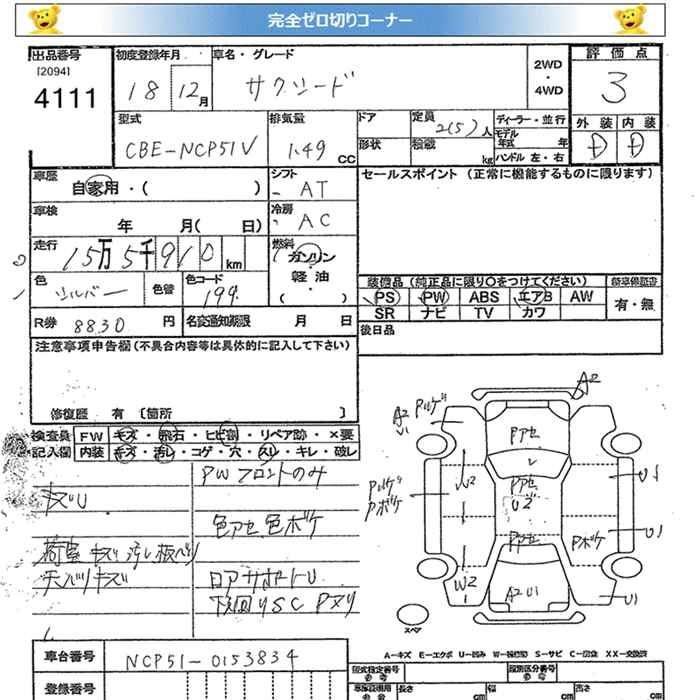 完全ゼロ切りコーナー
出品番号
[2094]
4111
初度登録年月
18 12月
車名・グレード
サクシード
2WD
・
4WD
評価点
3
型式
CBE-NCP51V
排気量
1.49 CC
ドア
形状
定員
2(5)人
積載
kg
ディーラー・並行
モデル
年式 年
ハンドル 左・右
外装 内装
D D
車歴
自家用・( )
シフト
AT
セールスポイント (正常に機能するものに限ります)
車検
年 月( 日)
冷房
AC
走行
15万5千910km
燃料
ガソリン
・
軽油
( )
色
シルバー
色替
色コード
199
装備品 (純正品に限り○をつけてください)
新車保証書
PS PW ABS エアB AW
有・無
SR ナビ TV カワ
R券 8830 円
名変通知期限 月 日
後日品
注意事項申告欄 (不具合内容等は具体的に記入して下さい)
修復歴 有 [箇所 ]
検査員
記入欄
FW キズ・飛石・ヒビ割・リペア跡・×要
内装 キズ・汚レ・コゲ・穴・スレ・キレ・破レ
PWフロントのみ
キズU
色アセ 色ボケ
荷室 キズ 汚レ 板ベリ
天バリキズ
ロアサポートU
下廻りSC Pヌリ
A2
A2
U1
Pハゲ
Pアセ
W2
Pハゲ
Pボケ
Pアセ
U2
U1
U1
Pアセ
Pボケ
W2
A2 U1
U1
スペア
A－キズ E－エクボ U－凹み W－補修跡 S－サビ C－腐食 XX－交換済
車台番号
NCP51-0153834
登録番号
型式指定番号
参考
類別区分番号
参考
長さ
cm
幅
cm
高さ
cm